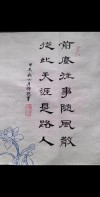 前塵往事隨風散
從此天涯是路人